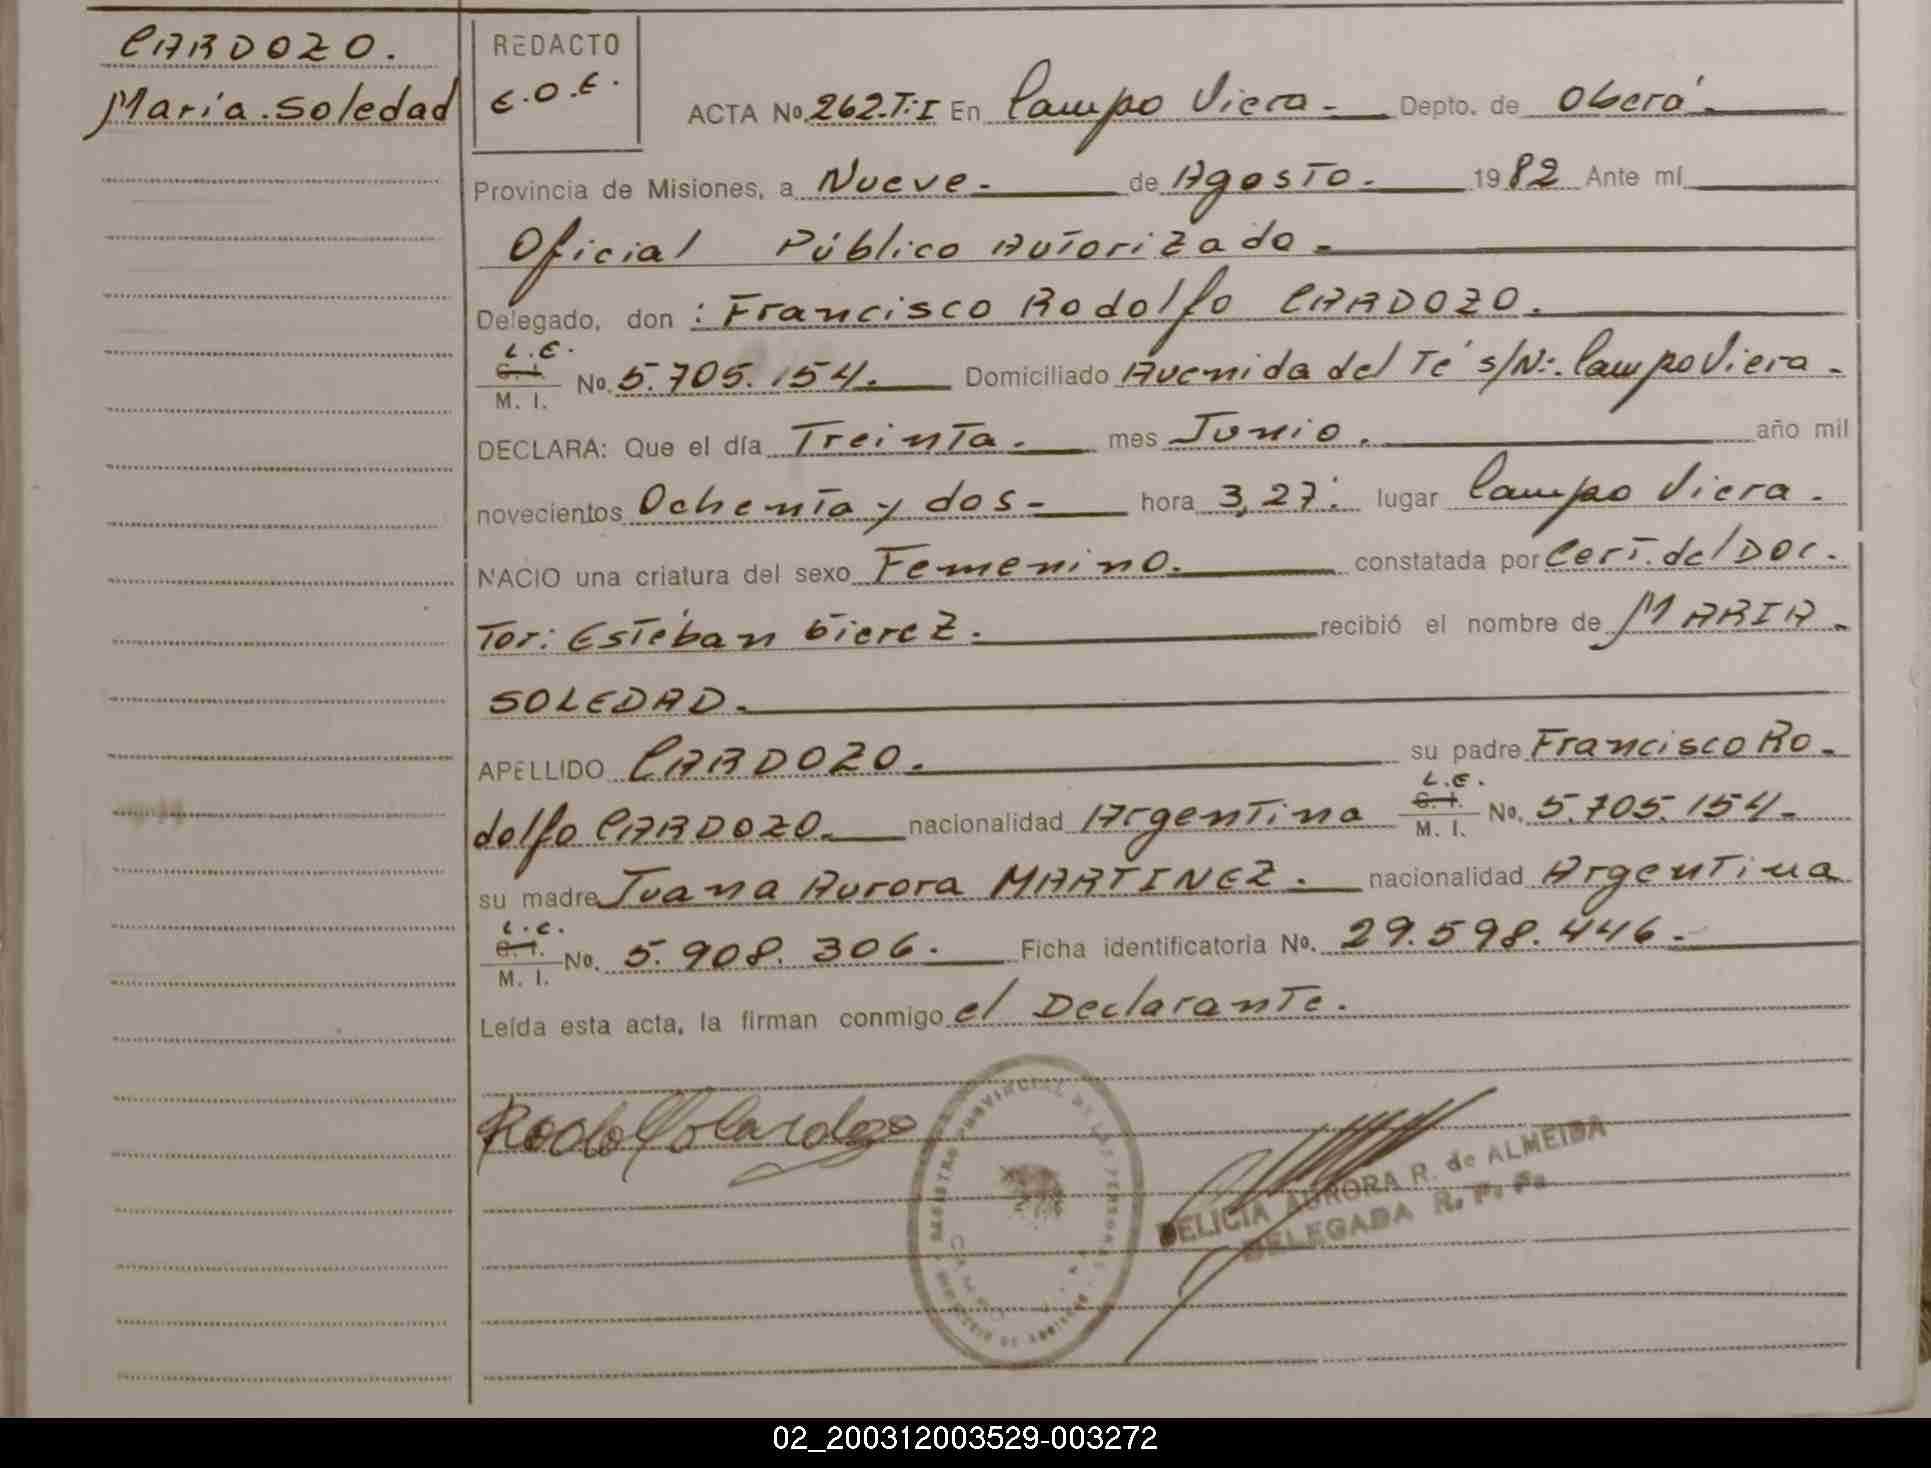 CARDOZO.
María.Soledad
REDACTO
E.O.E.
ACTA No. 262.T:I En Campo Viera.- Depto. de Oberá.-
Provincia de Misiones, a Nueve.- de Agosto.- 1982 Ante mí
Oficial Público Autorizado.-
Delegado, don : Francisco Rodolfo CARDOZO.
L.E.
C. I.
M. I.
No. 5.705.154.- Domiciliado Avenida del Té s/Nº. Campo Viera.-
DECLARA: Que el día Treinta.- mes Junio. año mil
novecientos Ochenta y dos.- hora 3,27. lugar Campo Viera.
NACIO una criatura del sexo Femenino.- constatada por Cert. del Doc.
Tor: Esteban recibió el nombre de MARIA.-
SOLEDAD.-
APELLIDO CARDOZO.- su padre Francisco Ro-
dolfo CARDOZO.- nacionalidad Argentina
L.E.
C. I.
M. I.
No. 5.705.154.-
su madre Juana Aurora MARTINEZ.- nacionalidad Argentina
L.C.
C. I.
M. I.
No. 5.908.306.- Ficha identificatoria No. 29.598.446.-
Leída esta acta, la firman conmigo el Declarante.
Rodolfo Cardozo
REGISTRO PROVINCIAL DE LAS PERSONAS
DELICIA AURORA R. de ALMEIDA
DELEGADA R. P. P.
02_200312003529-003272